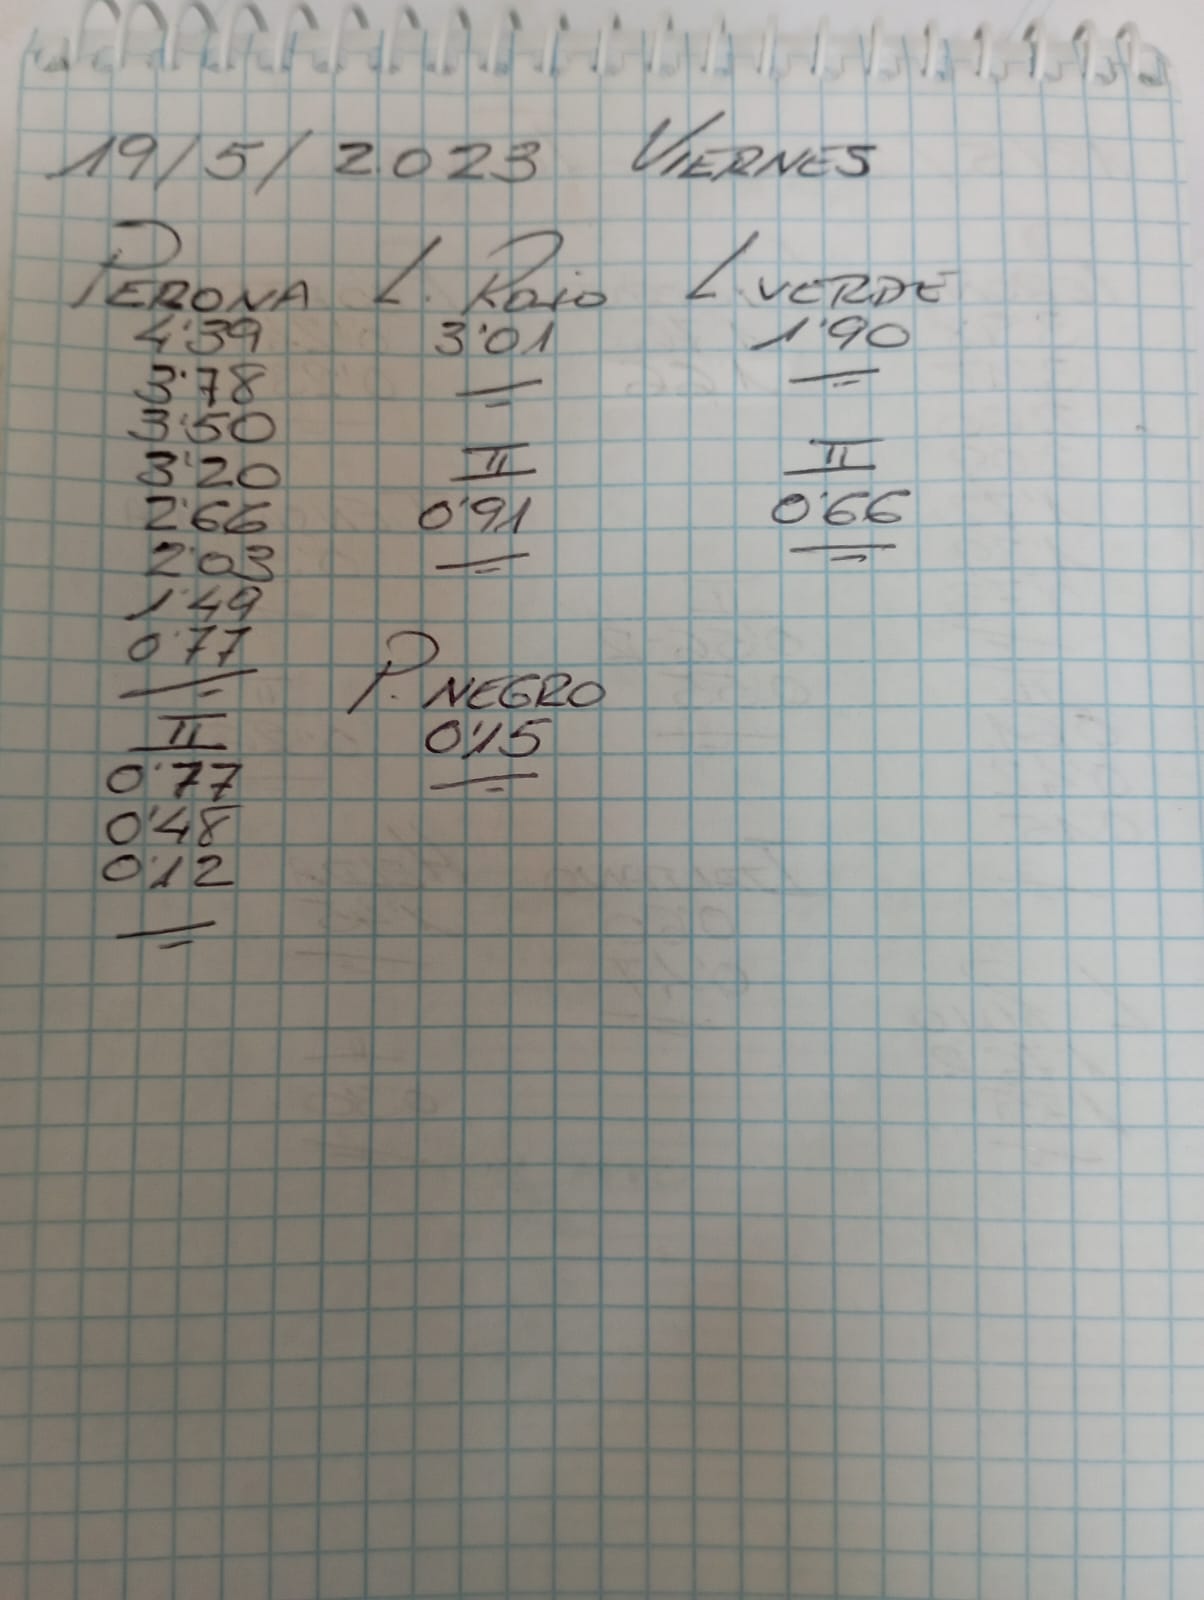 19/5/2023 VIERNES
PERONA
4'39
3'78
3'50
3'20
2'66
2'03
1'49
0'77
II
0'77
0'48
0'12
L. ROJO
3'01
II
0'91
P. NEGRO
0'15
L. VERDE
1'90
II
0'66